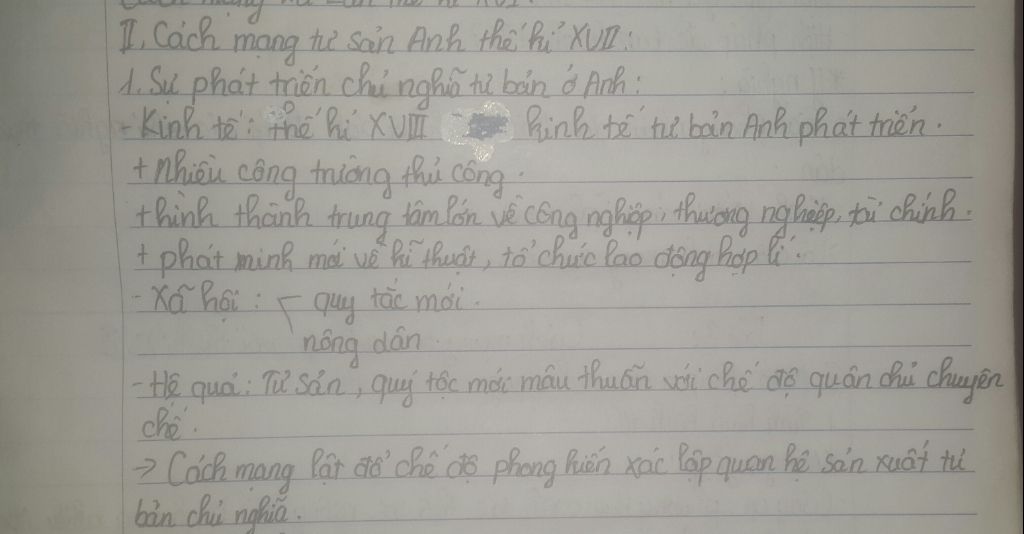 II. Cách mạng tư sản Anh thế kỉ XVII:
1. Sự phát triển chủ nghĩa tư bản ở Anh:
- Kinh tế: thế kỉ XVIII kinh tế tư bản Anh phát triển.
+ Nhiều công trường thủ công.
+ hình thành trung tâm lớn về công nghiệp, thương nghiệp, tài chính.
+ phát minh mới về kĩ thuật, tổ chức lao động hợp lí.
- Xã hội: quy tắc mới.
nông dân.
- Hệ quả: Tư sản, quý tộc mới mâu thuẫn với chế độ quân chủ chuyên
chế.
→ Cách mạng lật đổ chế độ phong kiến xác lập quan hệ sản xuất tư
bản chủ nghĩa.